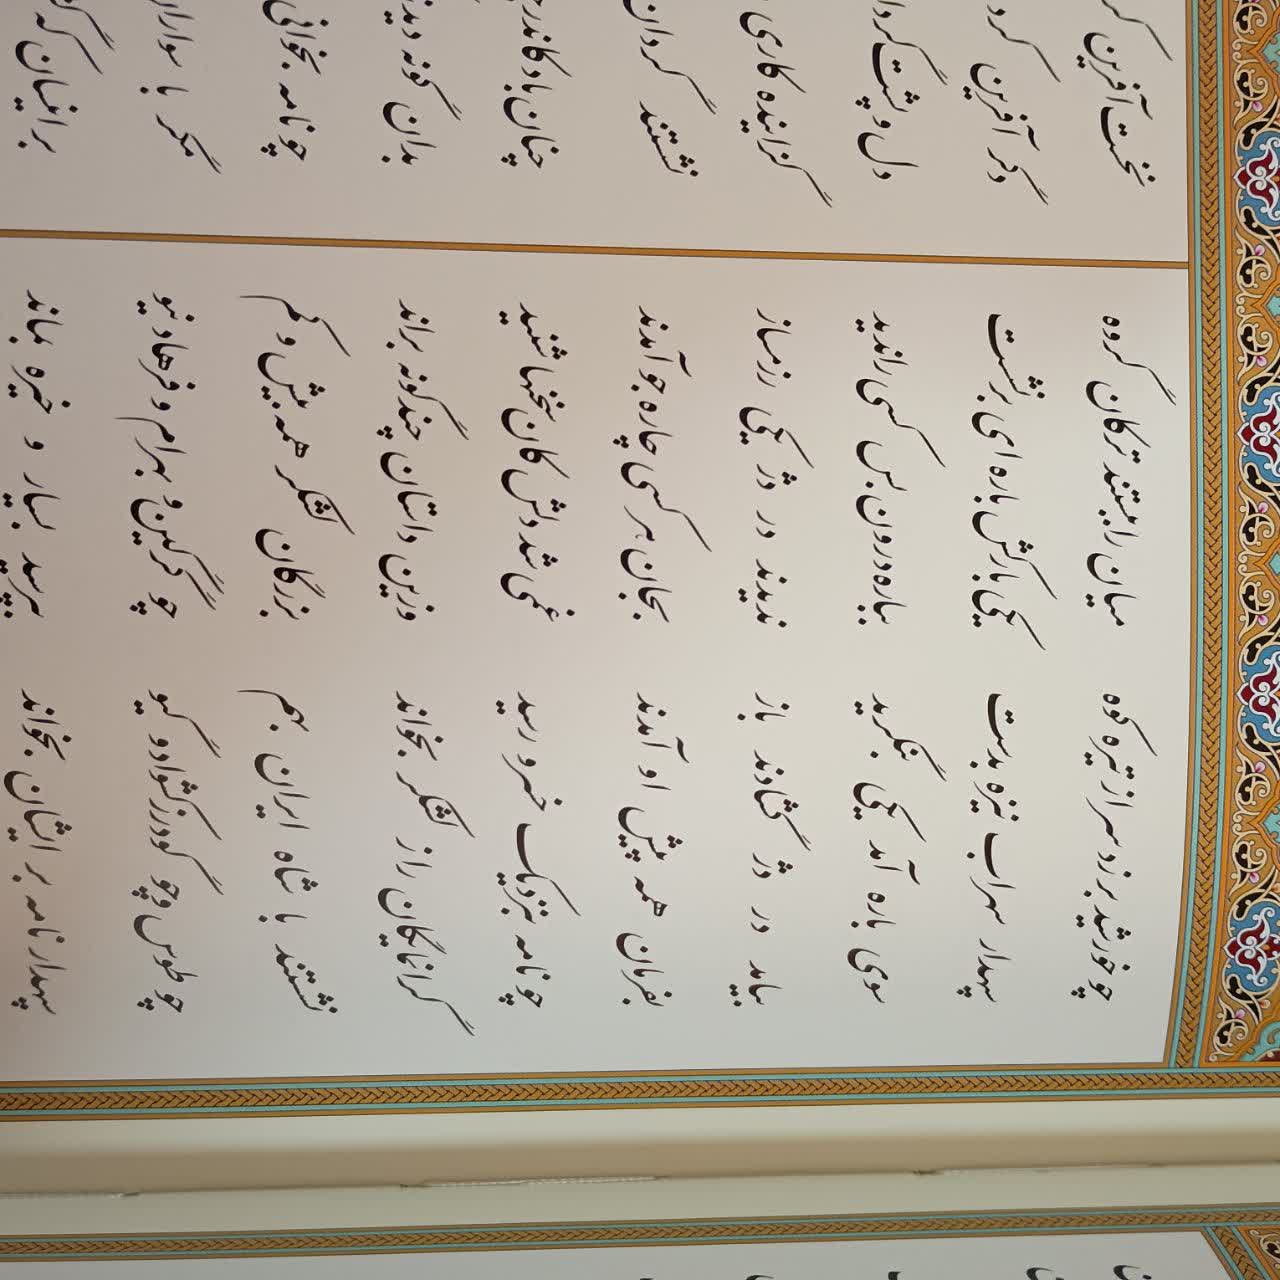 چو خورشید برزد سر از تیره کوه میان را ببستند ترکان گروه
سپهدار سهراب نیزه بدست یکی بارکش باره ای برنشست
سوی باره آمد یکی بنگرید بباره درون بس کسی راندید
بیامد در دژ گشادند باز ندیدند در دژ یکی رزمساز
بفرمان همه پیش او آمدند بجان هر کسی چاره جو آمدند
چو نامه بنزدیک خسرو رسید غمی شد دلش کان سخنها شنید
گرانمایگان را ز لشگر بخواند وزین داستان چندگونه براند
نشستند با شاه ایران بهم بزرگان لشگر همه بیش و کم
چو طوس و چو گودرز کشواد و گیو چو گرگین و بهرام و فرهاد نیو
سپهدار نامه بر ایشان بخواند بپرسید بسیار و خیره بماند
نخست آفرین
دگر آفرین
دل و پشت
گزاینده کاری
نشستند گردان
چنان باد
بدان گونه
چو نامه بخوانی
مگر با